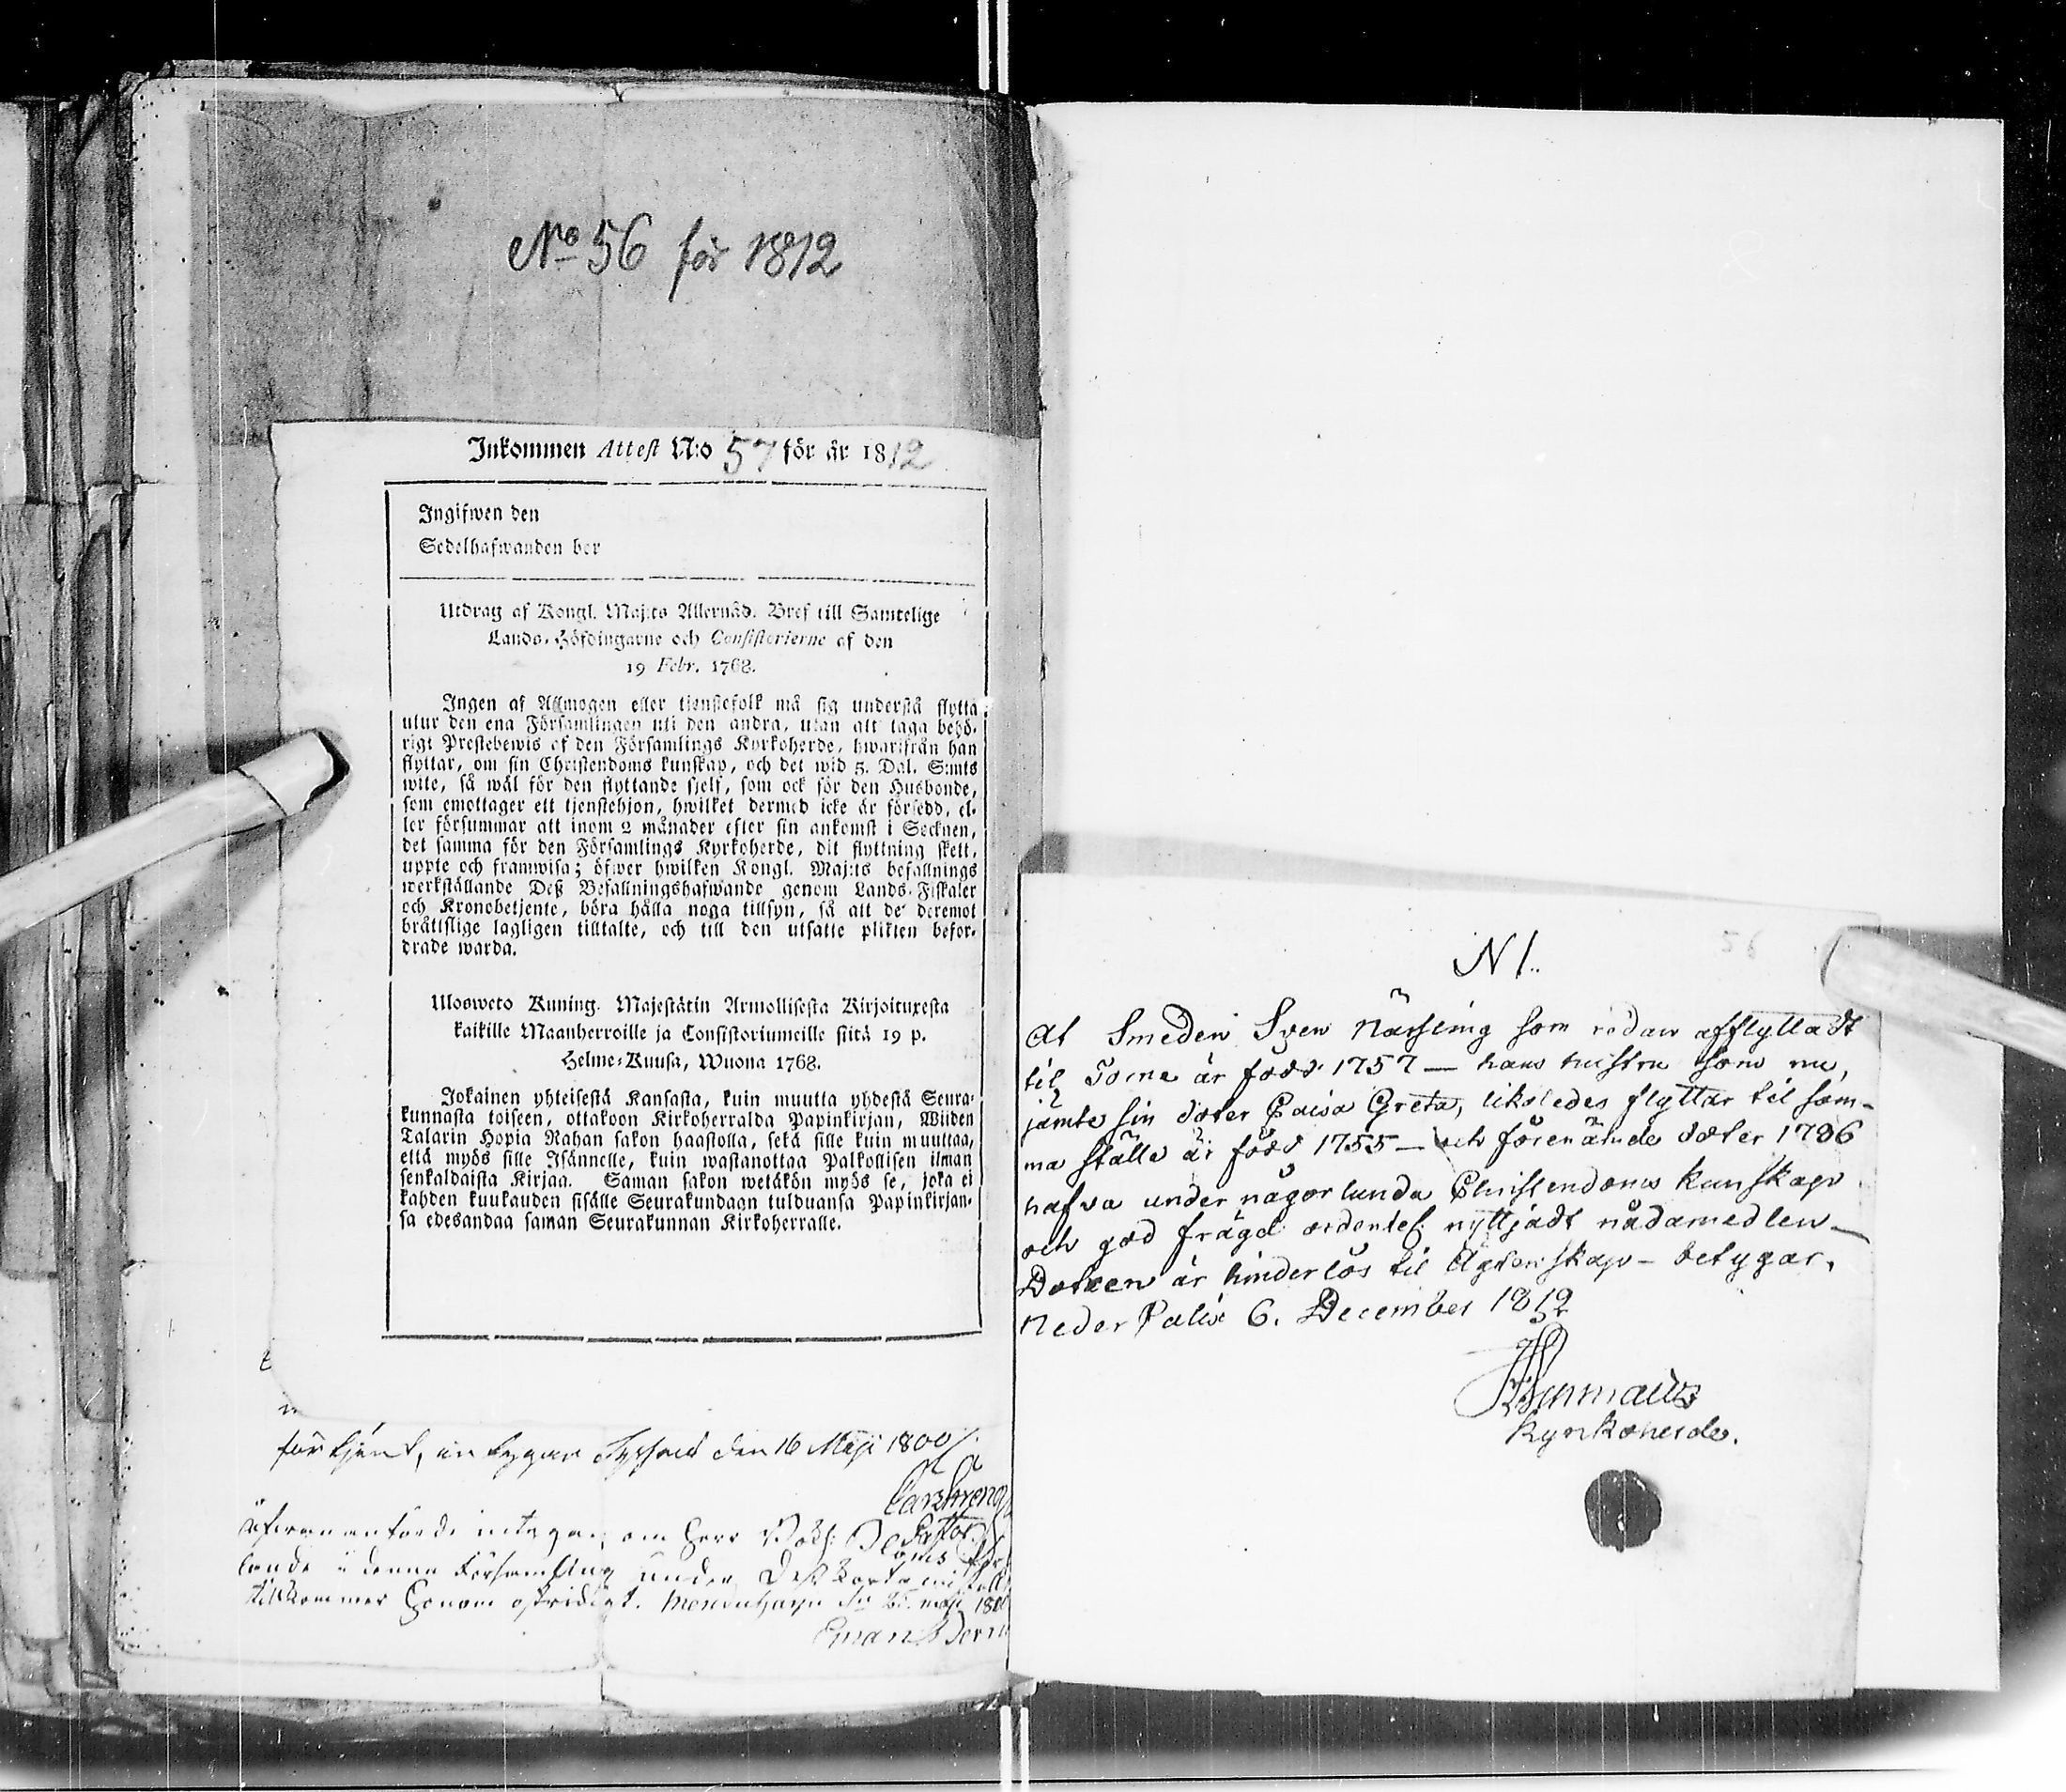 No 56 för 1812
Inkommen Attest N:o 57 för år 1812
Ingifwen den
Sedelhafwanden bor
Utdrag af Kongl. Maj:ts Allernåd. Bref till Samtelige
Lands-Höfdingarne och Consistorierne af den
19 Febr. 1768.
Ingen af Allmogen eller tjenstefolk må sig understå flytta
utur den ena Församlingen uti den andra, utan att taga behö-
rigt Prestebewis af den Församlings Kyrkoherde, hwarifrån han
flyttar, om sin Christendoms kunskap, och det wid 5. Dal. S:mts
wite, så wäl för den flyttande sjelf, som ock för den Husbonde,
som emottager ett tjenstehjon, hwilket dermed icke är försedd, el-
ler försummar att inom 2 månader efter sin ankomst i Socknen,
det samma för den Församlings Kyrkoherde, dit flyttning skett,
uppte och framwisa; öfwer hwilken Kongl. Maj:ts befallnings
werkställande Deß Befallningshafwande genom Lands-Fiskaler
och Kronobetjente, böra hålla noga tillsyn, så att de deremot
bråttslige lagligen tilltalte, och till den utsatte plikten befor-
drade warda.
Ulosweto Kuning. Majestätin Armollisesta Kirjoituxesta
kaikille Maanherroille ja Consistoriumeille siitä 19 p.
Helme-Kuusa, Wuona 1768.
Jokainen yhteisestä Kansasta, kuin muutta yhdestä Seura-
kunnasta toiseen, ottakoon Kirkoherralda Papinkirjan, Wiiden
Talarin Hopia Rahan sakon haastolla, sekä sille kuin muuttaa,
että myös sille Isännelle, kuin wastanottaa Palkollisen ilman
senkaldaista Kirjaa. Saman sakon wetäkön myös se, joka ei
kahden kuukauden sisälle Seurakundaan tulduansa Papinkirjan-
sa edesandaa saman Seurakunnan Kirkoherralle.
förtjent, den 16 Maji 1800
Pastor
om Herr
lande i denna Församling under
tilkommer Honom ostridigt.
Eman
N 1.
56
At Smeden Sven Närsling som redan afflyttadt
til Torne är född 1757 — hans hustru som nu,
jämte sin doter Caisa Greta, likaledes flyttar til sam-
ma ställe är född 1755 — och förenämde doter 1786
hafva under någorlunda Christendoms kunskap
och god frägd ordentel: nyttjadt nådamedlen —
Dotren är hinderlös til Ägtenskap — betygar.
Neder Calix 6. December 1812
Kyrkoherde.